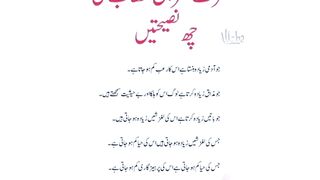 چھ نصیحتیں
جو آدمی زیادہ ہنستا ہے اس کا رعب کم ہو جاتا ہے۔
جو مذاق زیادہ کرتا ہے لوگ اس کو ہلکا اور بے حیثیت سمجھتے ہیں۔
جو باتیں زیادہ کرتا ہے اس کی لغزشیں زیادہ ہو جاتی ہیں۔
جس کی لغزشیں زیادہ ہو جاتی ہیں اس کی حیا کم ہو جاتی ہے۔
جس کی حیا کم ہو جاتی ہے اس کی پرہیز گاری کم ہو جاتی ہے۔